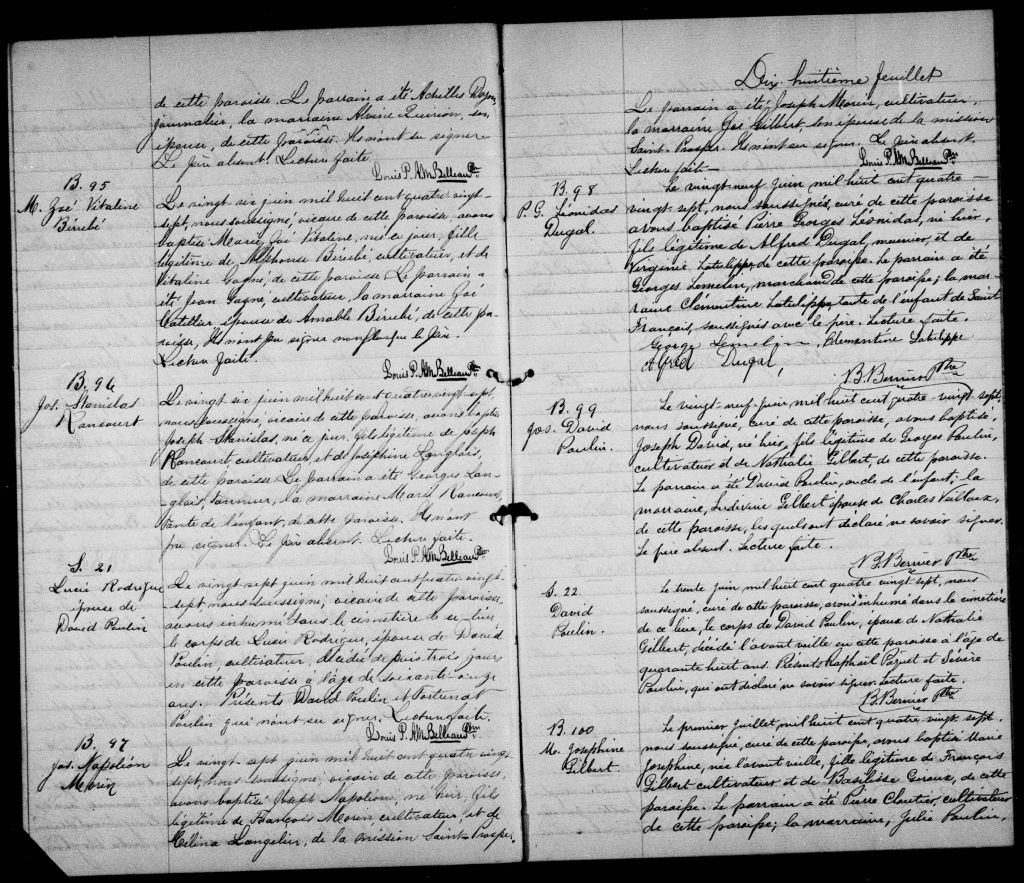 de cette paroisse. Le parrain a été Achilles
journalier, la marraine son
épouse, de cette paroisse. Ils n'ont su signer
Le père absent. Lecture faite.
Louis P. A. M. Belleau Ptre
B. 95
M. Zoé Vitaline
Bérubé
Le vingt six juin mil huit cent quatre vingt-
sept, nous soussigné, vicaire de cette paroisse, avons
baptisé Marie Zoé Vitaline, née ce jour, fille
légitime de Alphonse Bérubé, cultivateur, et de
Vitaline Gagné, de cette paroisse. Le parrain a
été Jean Gagné, cultivateur, la marraine Zoé
épouse de Amable Bérubé, de cette pa-
roisse. Ils n'ont pu signer le père.
Lecture faite.
Louis P. A. M. Belleau Ptre
B. 96
Jos. Stanislas
Rancourt
Le vingt six juin mil huit cent quatre vingt sept,
nous soussigné, vicaire de cette paroisse, avons baptisé
Joseph Stanislas, né ce jour, fils légitime de Joseph
Rancourt, cultivateur, et de Joséphine Langlais,
de cette paroisse. Le parrain a été Georges Lan-
glais, la marraine Marie Rancourt,
tante de l'enfant, de cette paroisse. Ils n'ont
pu signer. Le père absent. Lecture faite.
Louis P. A. M. Belleau Ptre
S. 21
Lucie Rodrigue
épouse de
David Poulin
Le vingt sept juin mil huit cent quatre vingt-
sept nous soussigné, vicaire de cette paroisse
avons inhumé dans le cimetière de ce lieu,
le corps de Lucie Rodrigue, épouse de David
Poulin, cultivateur, décédée depuis trois jours
en cette paroisse à l'âge de soixante-onze
ans. Présents David Poulin et Fortunat
Poulin qui n'ont su signer. Lecture faite.
Louis P. A. M. Belleau Ptre
B. 97
Jos. Napoléon
Morin
Le vingt sept juin mil huit cent quatre vingt
sept, nous soussigné, vicaire de cette paroisse,
avons baptisé Joseph Napoléon, né hier, fils
légitime de François Morin, cultivateur, et de
Célina Langelier, de la mission Saint-Prosper.
Dix-huitième feuillet
Le parrain a été Joseph Morin, cultivateur,
la marraine Zoé Gilbert, son épouse de la mission
Saint-Prosper. Ils n'ont su signer. Le père absent.
Lecture faite.
Louis P. A. M. Belleau Ptre
B. 98
P. G. Léonidas
Dugal.
Le vingt-neuf juin mil huit cent quatre-
vingt-sept, nous soussigné, curé de cette paroisse
avons baptisé Pierre Georges Léonidas, né hier,
fils légitime de Alfred Dugal, meunier, et de
Virginie Latulippe, de cette paroisse. Le parrain a été
Georges Lemelin, marchand de cette paroisse; la mar-
raine Clémentine Latulippe, tante de l'enfant de Saint
François, soussignés avec le père. Lecture faite.
George Lemelin, Clémentine Latulippe
Alfred Dugal,
B. Bernier Ptre
B. 99
Jos. David
Poulin.
Le vingt-neuf juin, mil huit cent quatre-vingt-sept,
nous soussigné, curé de cette paroisse, avons baptisé
Joseph David, né hier, fils légitime de Georges Poulin,
cultivateur et de Nathalie Gilbert, de cette paroisse.
Le parrain a été David Poulin, oncle de l'enfant; la
marraine, Ludivine Gilbert épouse de Charles Veilleux,
de cette paroisse, lesquels ont déclaré ne savoir signer.
Le père absent. Lecture faite.
B. Bernier Ptre
S. 22
David
Poulin.
Le trente juin, mil huit cent quatre vingt-sept, nous
soussigné, curé de cette paroisse, avons inhumé dans le cimetière
de ce lieu, le corps de David Poulin, époux de Nathalie
Gilbert, décédé l'avant veille en cette paroisse à l'âge de
quarante huit ans. Présents Raphaël Paquet et Sévère
Poulin, qui ont déclaré ne savoir signer. Lecture faite.
B. Bernier Ptre
B. 100
M. Josephine
Gilbert.
Le premier juillet, mil huit cent quatre-vingt-sept
nous soussigné, curé de cette paroisse, avons baptisé Marie
Josephine, née l'avant veille, fille légitime de François
Gilbert cultivateur et de Basilisse Giroux, de cette
paroisse. Le parrain a été Pierre Cloutier, cultivateur
de cette paroisse; la marraine, Julie Poulin,